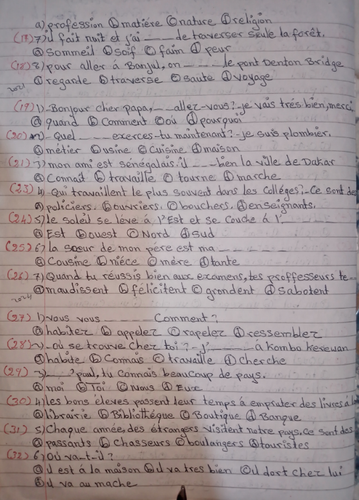 a) profession ⓑ matière ⓒ nature ⓓ religion
(18) 7) il fait nuit et j'ai ___ de traverser seule la forêt.
ⓐ Sommeil ⓑ soif ⓒ faim ⓓ peur
8) pour aller à Banjul, on ______ le pont Denton Bridge
ⓐ regarde ⓑ traverse ⓒ saute ⓓ voyage
(19) 1) Bonjour cher papa, ___ allez-vous? - je vais très bien, merci
ⓐ quand ⓑ Comment ⓒ où ⓓ pourquoi
(20) Quel ___ exerces-tu maintenant? - je suis plombier.
ⓐ métier ⓑ usine ⓒ Cuisine ⓓ maison
(21) 3) mon ami est sénégalais. il ___ bien la ville de Dakar
ⓐ Connait ⓑ travaille ⓒ tourne ⓓ marche
(23) 4) Qui travaillent le plus souvent dans les Collèges; - Ce sont de
ⓐ policiers. ⓑ ouvriers. ⓒ bouchers. ⓓ enseignants.
(24) 5) le soleil se lève à l'Est et se Couche à l' ______
ⓐ Est ⓑ ouest ⓒ Nord ⓓ sud
(25) 6) la sœur de mon père est ma ______
ⓐ Cousine ⓑ nièce ⓒ mère ⓓ tante
(26) 7) Quand tu réussis bien aux examens, tes proffesseurs te
ⓐ maudissent ⓑ félicitent ⓒ grondent ⓓ Sabotent
(27) 1) vous vous ______ Comment?
ⓐ habitez ⓑ appelez ⓒ rapelez ⓓ ressemblez
(28) où se trouve Chez toi? - J' ______ à Kombo Kerewan
ⓐ habite ⓑ Connais ⓒ travaille ⓓ Cherche
(29) ___? paul, tu Connais beaucoup de pays.
ⓐ moi ⓑ Toi ⓒ Nous ⓓ Eux
(30) 4) les bons élèves passent leur temps à emprunter des livres à
ⓐ librairie ⓑ Bibliothèque ⓒ Boutique ⓓ Banque
(31) 5) Chaque année, des étrangers visitent notre pays. Ce sont des
ⓐ passants ⓑ Chasseurs ⓒ boulangers ⓓ touristes
(32) 6) Où va-t-il?
ⓐ il est à la maison ⓑ il va très bien ⓒ il dort chez lui
ⓓ il va au marche